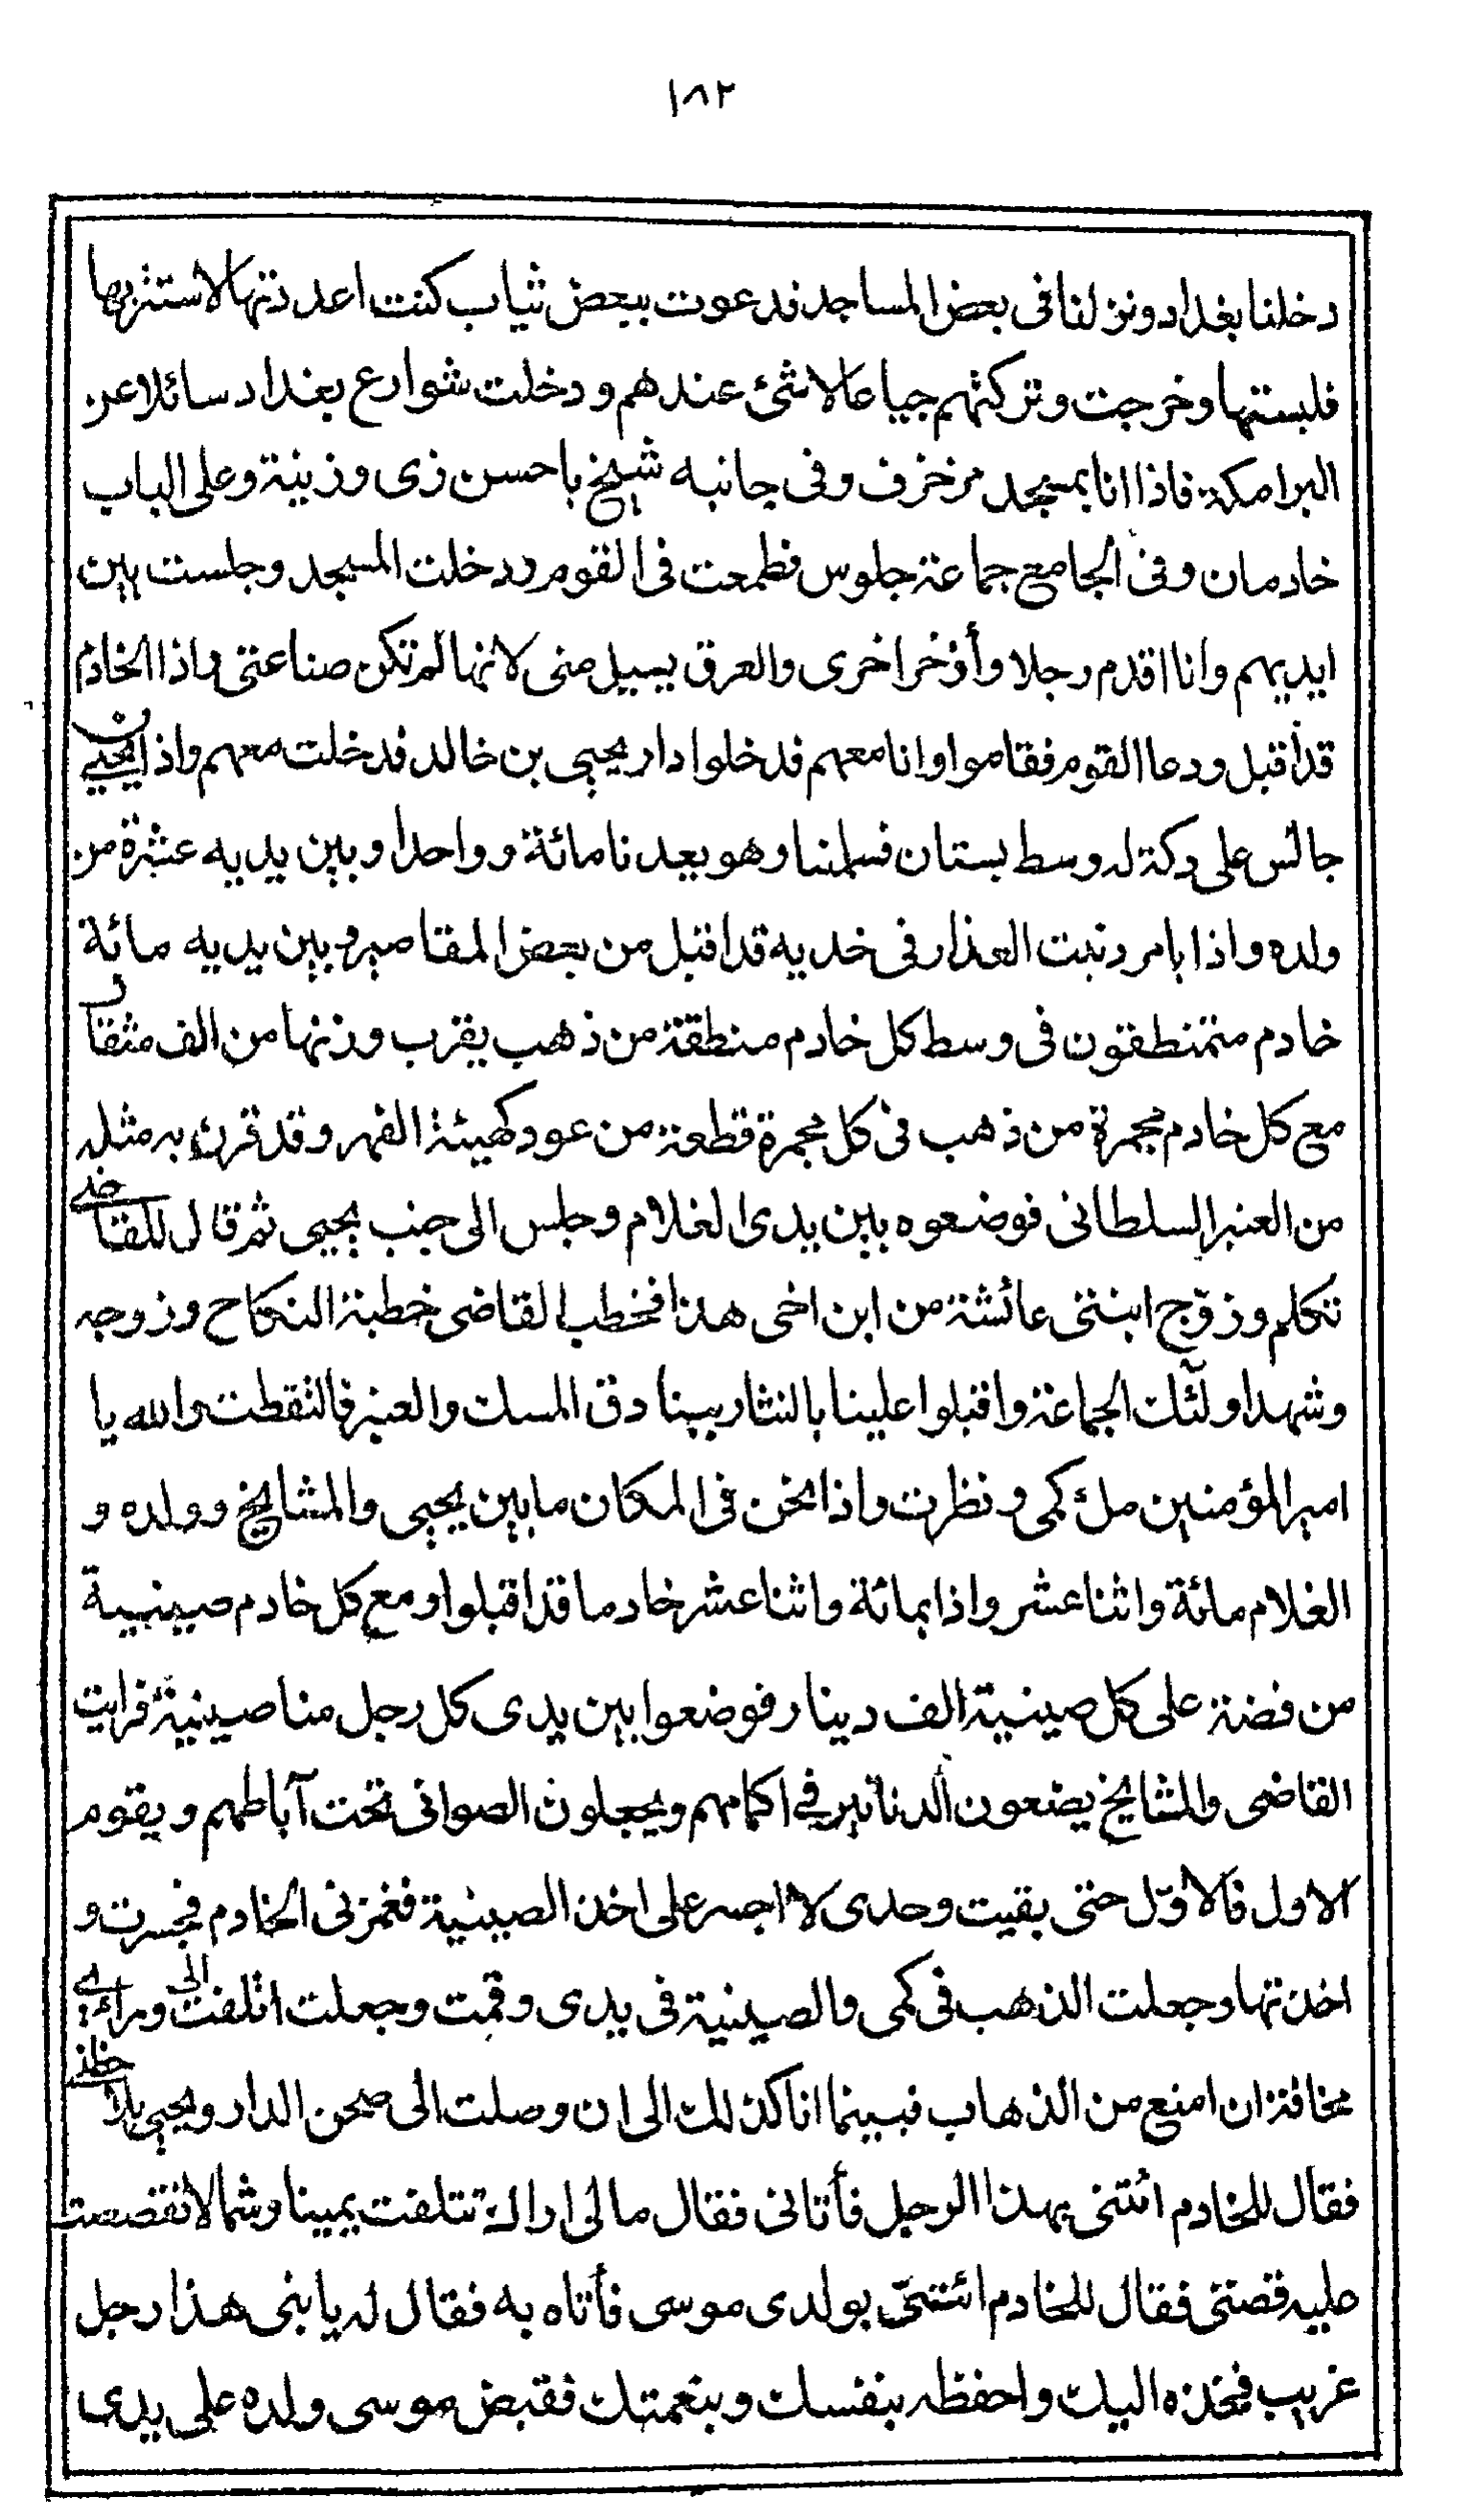 ١٨٢
دخلنا بغداد ونزلنا فى بعض المساجد فدعوت ببعض ثياب كنت اعددتها لاستتر بها
فلبستها وخرجت وتركتهم جياعا لا شئ عندهم ودخلت شوارع بغداد سائلا عن
البرامكة فاذا انا بمسجد مزخرف وفى جانبه شيخ باحسن زى وزينة وعلى الباب
خادمان وفى الجامع جماعة جلوس فطمعت فى القوم ودخلت المسجد وجلست بين
ايديهم وانا اقدم رجلا وأوخر اخرى والعرق يسيل منى لانها لم تكن صناعتى واذا الخادم
قد اقبل ودعا القوم فقاموا وانا معهم فدخلوا دار يحيى بن خالد فدخلت معهم واذا يحيى
جالس على دكة له وسط بستان فسلمنا وهو يعدنا مائة وواحدا وبين يديه عشرة من
ولده واذا بامرد نبت العذار فى خديه قد اقبل من بعض المقاصير وبين يديه مائة
خادم متنطقون فى وسط كل خادم منطقة من ذهب يقرب وزنها من الف مثقال
مع كل خادم مجمرة من ذهب فى كل مجمرة قطعة من عود كهيئة الفهر وقد قرن به مثله
من العنبر السلطانى فوضعوه بين يدى الغلام وجلس الى جنب يحيى ثم قال للقاضى
تكلم وزوّج ابنتى عائشة من ابن اخى هذا فخطب القاضى خطبة النكاح وزوجه
وشهد اولئك الجماعة واقبلوا علينا بالنثار ببنادق المسك والعنبر فالتقطت والله يا
امير المؤمنين ملء كمى ونظرت واذا نحن فى المكان ما بين يحيى والمشايخ وولده و
الغلام مائة واثنا عشر واذا بمائة واثنا عشر خادما قد اقبلوا ومع كل خادم صينية
من فضة على كل صينية الف دينار فوضعوا بين يدى كل رجل منا صينية فرايت
القاضى والمشايخ يضعون الدنانير فى اكمامهم ويجعلون الصوانى تحت آباطهم ويقوم
الاول فالاوّل حتى بقيت وحدى لا اجسر على اخذ الصينية فغمزنى الخادم فجسرت و
اخذتها وجعلت الذهب فى كمى والصينية فى يدى وقمت وجعلت اتلفت الى ورائى
مخافة ان امنع من الذهاب فبينما انا كذلك الى ان وصلت الى صحن الدار ويحيى يلاحظنى
فقال للخادم ائتنى بهذا الرجل فأتانى فقال مالى اراك تتلفت يمينا وشمالا فقصصت
عليه قصتى فقال للخادم ائتنى بولدى موسى فأتاه به فقال له يا بنى هذا رجل
غريب فخذه اليك واحفظه بنفسك وبنعمتك فقبض موسى ولده على يدى